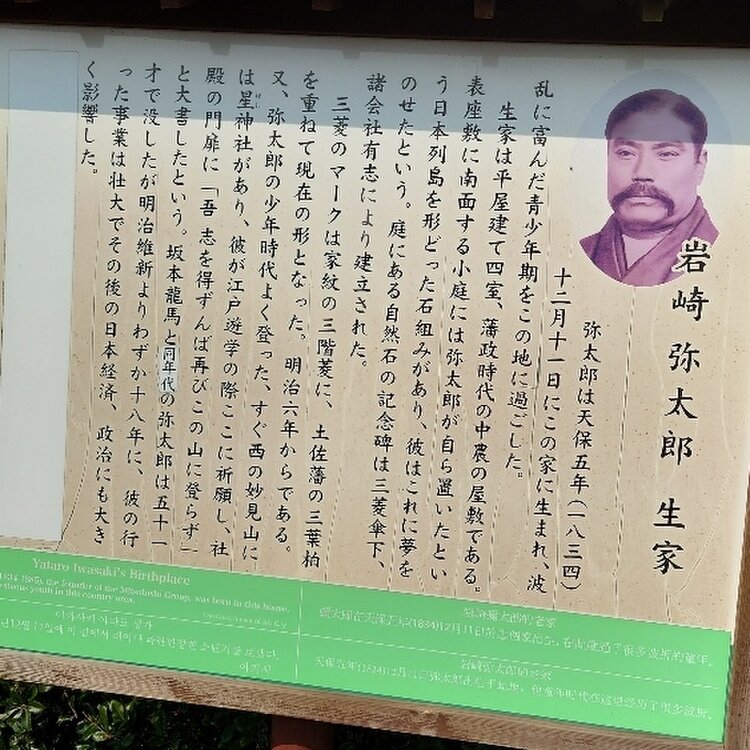 岩崎 弥太郎 生家
弥太郎は天保五年(一八三四)
十二月十一日にこの家に生まれ、波
乱に富んだ青少年期をこの地に過ごした。
生家は平屋建て四室、藩政時代の中農の屋敷である。
表座敷に南面する小庭には弥太郎が自ら置いたとい
う日本列島を形どった石組みがあり、彼はこれに夢を
のせたという。庭にある自然石の記念碑は三菱傘下、
諸会社有志により建立された。
三菱のマークは家紋の三階菱に、土佐藩の三葉柏
を重ねて現在の形となった。明治六年からである。
又、弥太郎の少年時代よく登った、すぐ西の妙見山に
は星神社があり、彼が江戸遊学の際ここに祈願し、社
殿の門扉に「吾 志を得ずんば再びこの山に登らず」
と大書したという。坂本龍馬と同年代の弥太郎は五十一
才で没したが明治維新よりわずか十八年に、彼の行
った事業は壮大でその後の日本経済、政治にも大き
く影響した。
Yataro Iwasaki's Birthplace
the founder of the Mitsubishi Group, was born in this house.
youth in this country area.